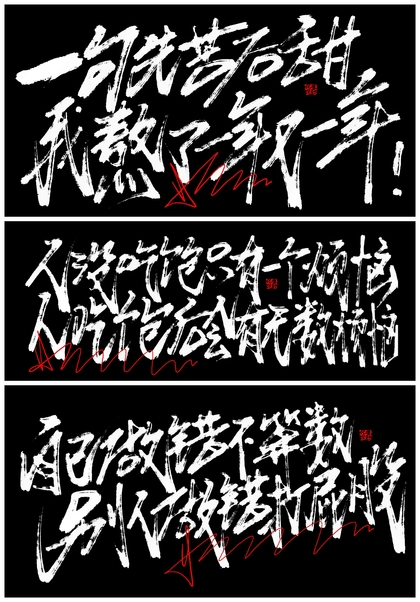 一句先苦后甜
我熬了一年又一年！
人没吃饱只有一个烦恼
人吃饱后会有无数烦恼
自己做错不算数
别人做错打屁股